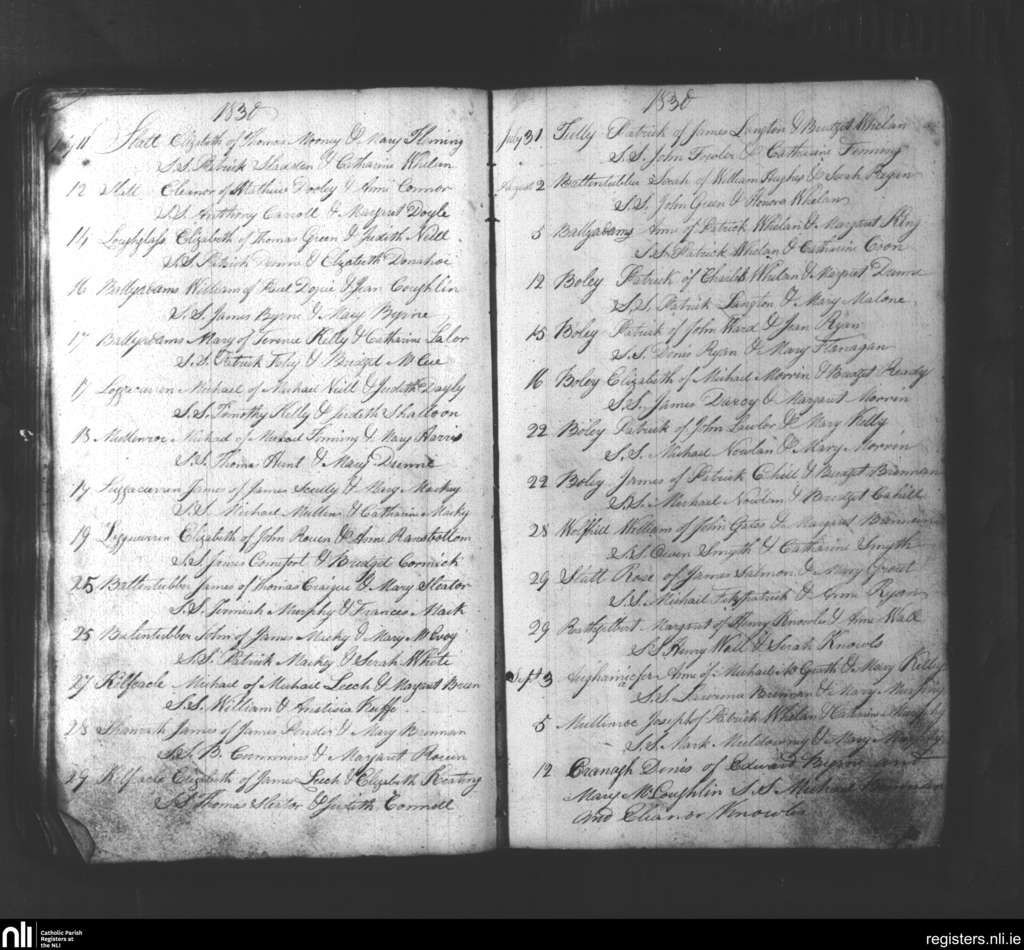 1830
July 11 Slatt Elizabeth of Thomas Mooney & Mary Fleming
S.S. Patrick & Catharine Whelan
12 Slatt Eleanor of Mathew Dooley & Ann Connor
S.S. Anthony Carroll & Margaret Doyle
14 Loughglass Elizabeth of Thomas Green & Judith Neill
S.S. Patrick Dunne & Elizabeth Donahoe
16 Ballyadams William of & Jean Coughlin
S.S. James Byrne & Mary Byrne
17 Ballyadams Mary of Terence Kelly & Catharine Lalor
S.S. Patrick & Bridget McCue
17 Michael of Michael Neill & Judith
S.S. Timothy Kelly & Judith
Mullenroe Michael of Michael Fleming & Mary Harris
S.S. Thomas Hunt & Mary Dunne
James of James Scully & Mary Mackey
S.S. Michael Mullen & Catharine Macky
19 Elizabeth of John Rouen & Anne Ransbottom
S.S. James Comefort & Bridget Cormick
25 Ballentubber James of Thomas Craigue & Mary Slator
S.S. Jermiah Murphy & Frances Mark
25 Balentubber John of James Macky & Mary McEvoy
S.S. Patrick Mackey & Serah White
27 Kilfeacle Michael of Michael Leech & Margaret
S.S. William & Anstisia
28 Shanrath James of James Pender & Mary Brennan
S.S. B. Cummins & Margaret Rouen
27 Elizabeth of James Leech & Elizabeth Keating
S.S. Thomas Slator & Judith Connell
1830
July 31 Tully Patrick of James Langton & Bridget Whelan
S.S. John Fowler & Catharine
August 2 Ballentubber Serah of William Hughes & Serah Regan
S.S. John Green & Honora Whelan
5 Ballyadams Ann of Patrick Whelan & Margaret King
S.S. Patrick Whelan & Catharine
12 Boley Patrick of Charles Whelan & Margaret Dunne
S.S. Patrick Langton & Mary Malone
15 Boley Patrick of John Ward & Jean Ryan
S.S. Denis Ryan & Mary Flanagan
16 Boley Elizabeth of Michael Morrin & Bridget Ready
S.S. James Darcy & Margaret Morrin
22 Boley Patrick of John Lawlor & Mary Kelly
S.S. Michael Nowlan & Mary Morrin
22 Boley James of Patrick & Bridget Brennan
S.S. Michael Nowlan & Bridget Cahill
28 Wolfhill William of John Gates & Margaret Brennan
S.S. Owen Smyth & Catharine Smyth
29 Slatt Rose of James Salmon & Mary
S.S. Michael Fitzpatrick & Ann Ryan
29 Rathgilbert Margaret of Henry Knowles & Ann Wall
S.S. Henry Wall & Serah Knowls
Sept 3 Anne of Michael McGrath & Mary Kelly
S.S. Lawrence Brennan & Mary Murphy
5 Mullinroe Joseph of Patrick Whelan & Catharine
S.S. Mark Muldowny & Mary
12 Cranagh Denis of Edward Byrne and
Mary McLoughlin S.S. Michael Brennan
and Eleanor Knowles
nli
Catholic Parish
Registers at
the NLI
registers.nli.ie